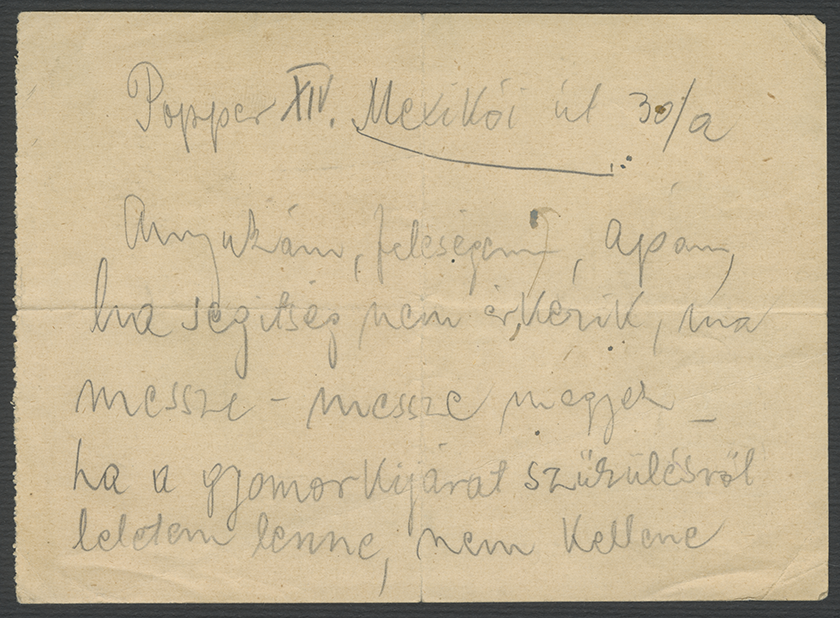 Popper XIV. Mexikói út 30/a
Anyukám, feleségem, apám,
ha segitség nem érkezik, ma
messze - messze megyek -
ha a gyomorkijárat szükülésröl
leletem lenne, nem kellene